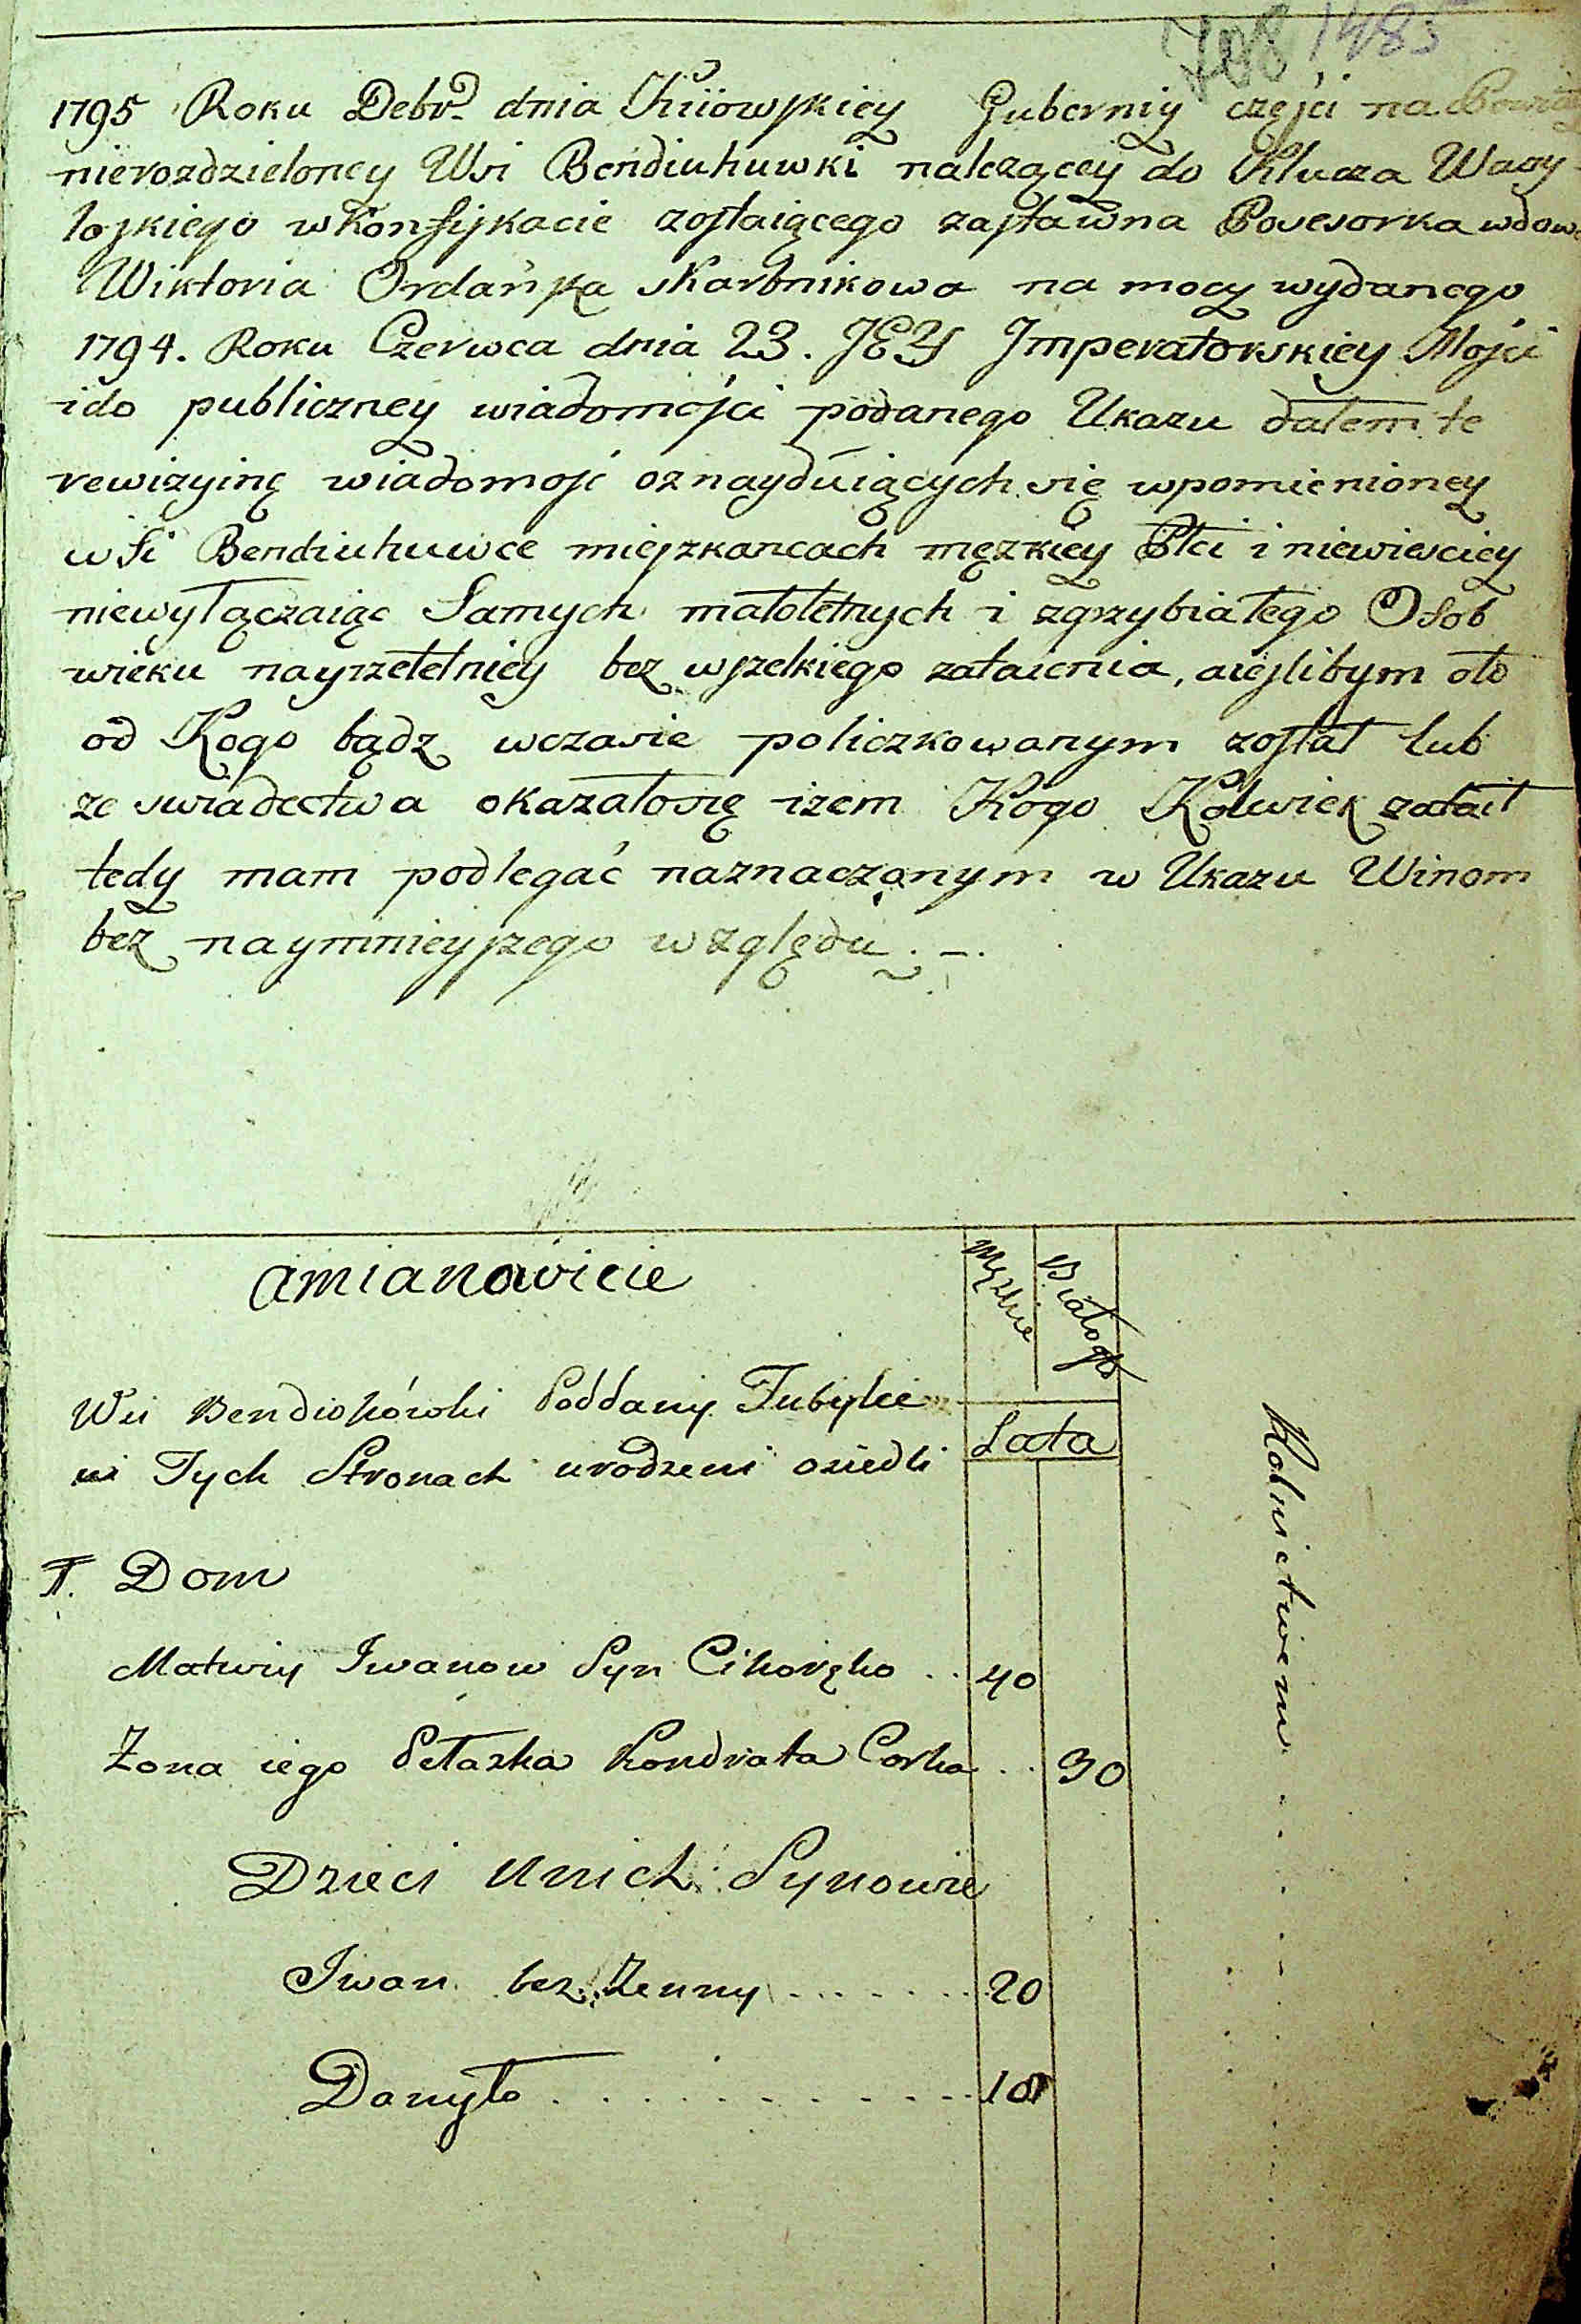 708 1485
1795 Roku Debr. dnia Kiiowskiey Gubernij części na Powia
nierozdzieloney Wsi Bendiuhuwki należącey do Klucza Wasy-
lozkiego w Konfiskacie zostaiącego zastawna Posesorka wdowa
Wiktoria Ordańska skarbnikowa na mocy wydanego
1794. Roku Czerwca dnia 23. JEY Imperatorskiey Mości
i do publiczney wiadomości podanego Ukazu dałem tę
rewizyinę wiadomość o znayduiących się w pomienioney
wsi Bendiuhuwce mieszkancach męzkiey Płci i niewiesciey
niewyłączaiąc Samych małoletnych i zgrzybiałego Osob
wieku nayrzetelniey bez wszelkiego zataienia, a ieslibym oto
od Kogo bądz w czasie policzkowanym został lub
ze swiadectwa okazałosię izem Kogo Kolwiek zataił
tedy mam podlegać naznaczonym w Ukazu Winom
bez naymnieyszego względu.–.
amianowicie
Męzkie
Białogło
Wsi Bendiohówki Poddany Tubylcie
w Tych Stronach urodzeni osiedli
Lata
Rolnictwem
1. Dom
Matwiy Iwanow Syn Cihorzko .. 40
Żona iego Pełazka Kondrata Corka .. 30
Dzieci u nich Synowie
Iwan bez Żenny ....... 20
Danyło ............ 18